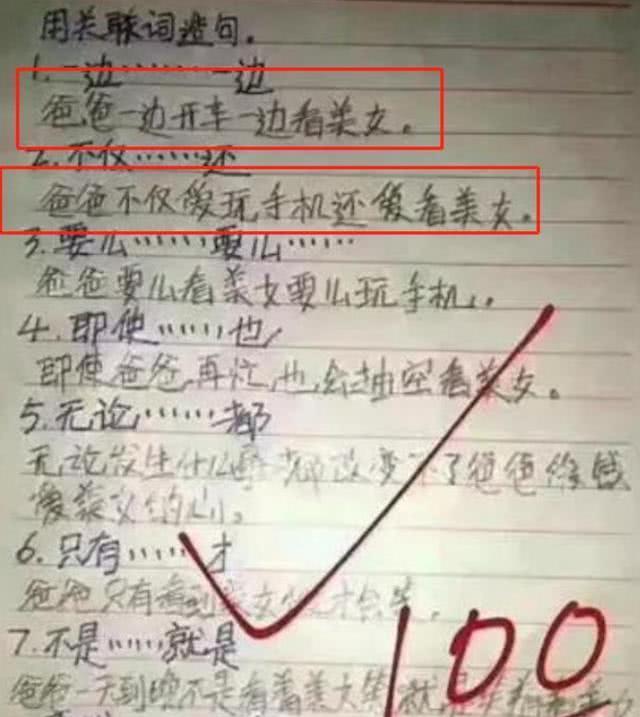 用关联词造句。
1.一边……一边
爸爸一边开车一边看美女。
2.不仅……还
爸爸不仅爱玩手机还爱看美女。
3.要么……要么……
爸爸要么看美女要么玩手机。
4.即使……也
即使爸爸再忙,也会抽空看美女。
5.无论……都
无论发生什么事都改变不了爸爸
爱美女的心。
6.只有……才
爸爸只有看到美女 才会笑。
7.不是……就是
爸爸一天到晚不是看着美女笑就是
100